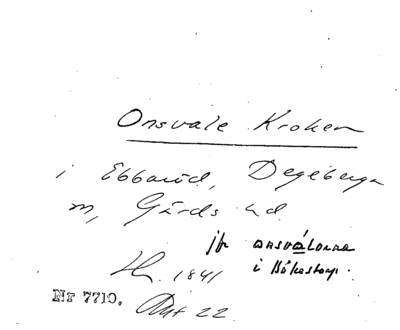 Onsvale Kroken
i Ebbaröd, Degeberga
m, Gärds hd
jfr onsvålorna
i Bökestorp.
1841
Nr 7710. Akt 22